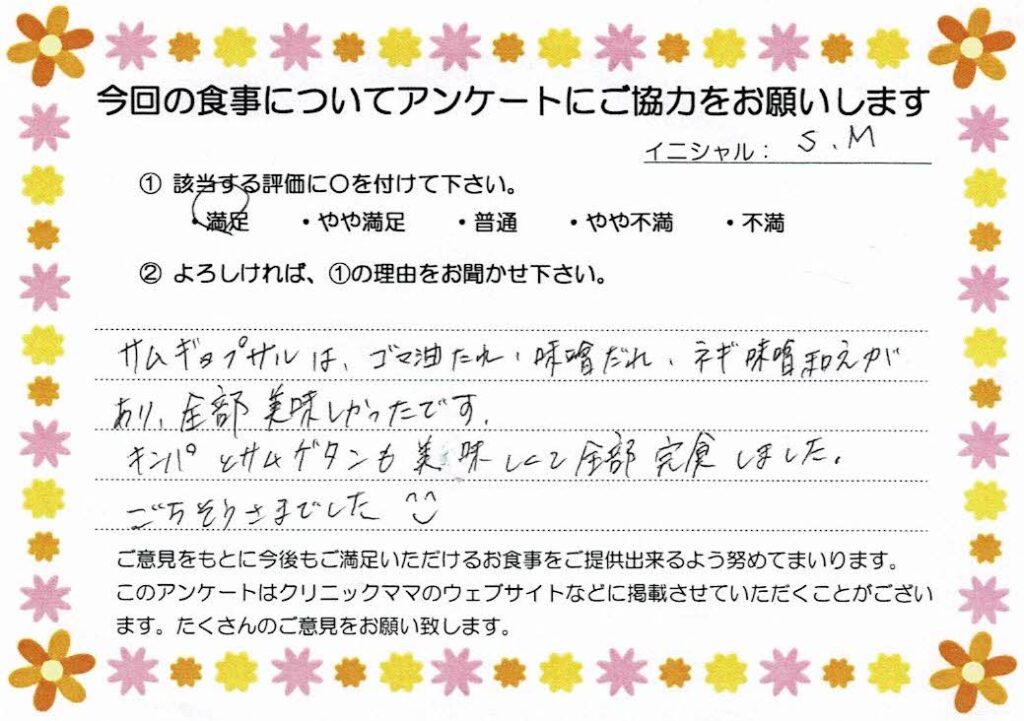 今回の食事についてアンケートにご協力をお願いします
イニシャル： S.M
① 該当する評価に〇を付けて下さい。
・満足 ・やや満足 ・普通 ・やや不満 ・不満
② よろしければ、①の理由をお聞かせ下さい。
サムギョプサルは、ゴマ油だれ、味噌だれ、ネギ味噌和えが
あり、全部美味しかったです。
キンパとサムゲタンも美味しくて全部完食しました。
ごちそうさまでした ^^
ご意見をもとに今後もご満足いただけるお食事をご提供出来るよう努めてまいります。
このアンケートはクリニックママのウェブサイトなどに掲載させていただくことがござい
ます。たくさんのご意見をお願い致します。